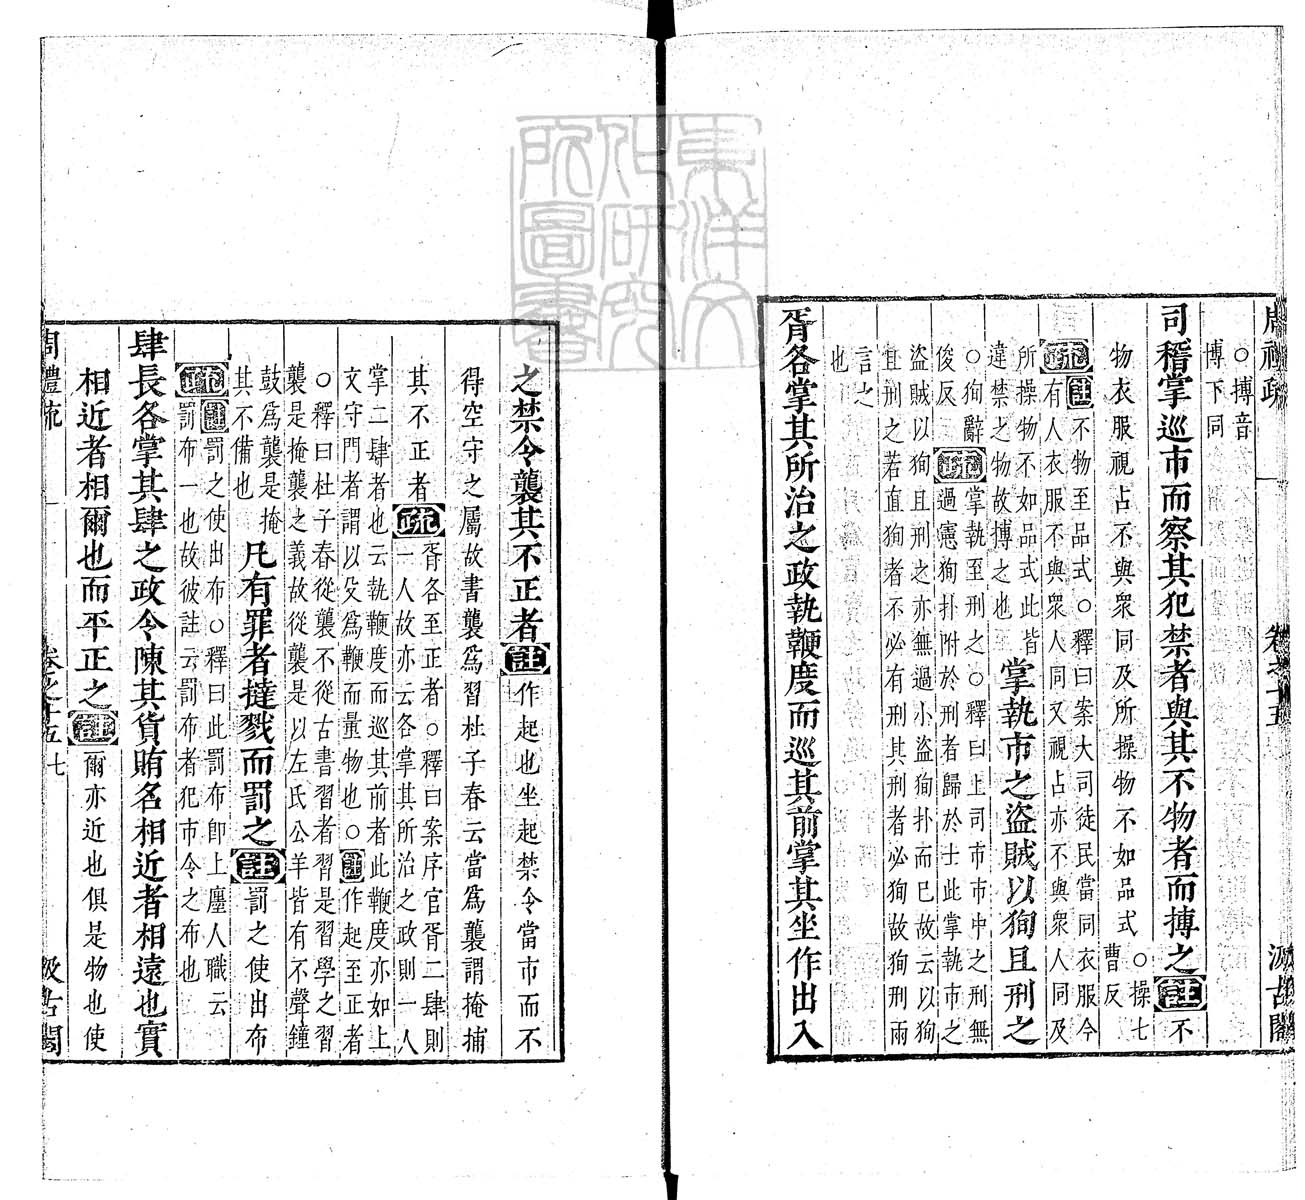 周禮疏
卷之十五
汲古閣
○搏音
博下同
司稽掌巡市而察其犯禁者與其不物者而搏之註不
物衣服視占不與衆同及所操物不如品式○操七
曹反
疏註不物至品式○釋曰案大司徒民當同衣服今
有人衣服不與衆人同又視占亦不與衆人同及
所操物不如品式此皆
違禁之物故搏之也
掌執市之盜賊以徇且刑之
○徇辭
俊反
疏掌執至刑之○釋曰上司市市中之刑無
過憲徇扑附於刑者歸於士此掌執市之
盜賊以徇且刑之亦無過小盜徇扑而已故云以徇
且刑之若直徇者不必有刑其刑者必徇故徇刑兩
言之
也
胥各掌其所治之政執鞭度而巡其前掌其坐作出入
之禁令襲其不正者註作起也坐起禁令當市而不
得空守之屬故書襲爲習杜子春云當爲襲謂掩捕
其不正者疏胥各至正者○釋曰案序官胥二肆則
一人故亦云各掌其所治之政則一人
掌二肆者也云執鞭度而巡其前者此鞭度亦如上
文守門者謂以殳爲鞭而量物也○註作起至正者
○釋曰杜子春從襲不從古書習者習是習學之習
襲是掩襲之義故從襲是以左氏公羊皆有不聲鐘
鼓爲襲是掩
其不備也
凡有罪者撻戮而罰之註罰之使出布
疏註罰之使出布○釋曰此罰布卽上廛人職云
罰布一也故彼註云罰布者犯市令之布也
肆長各掌其肆之政令陳其貨賄名相近者相遠也實
相近者相爾也而平正之註爾亦近也俱是物也使
周禮疏
卷之十五
七
汲古閣
東洋文
化研究
所圖書